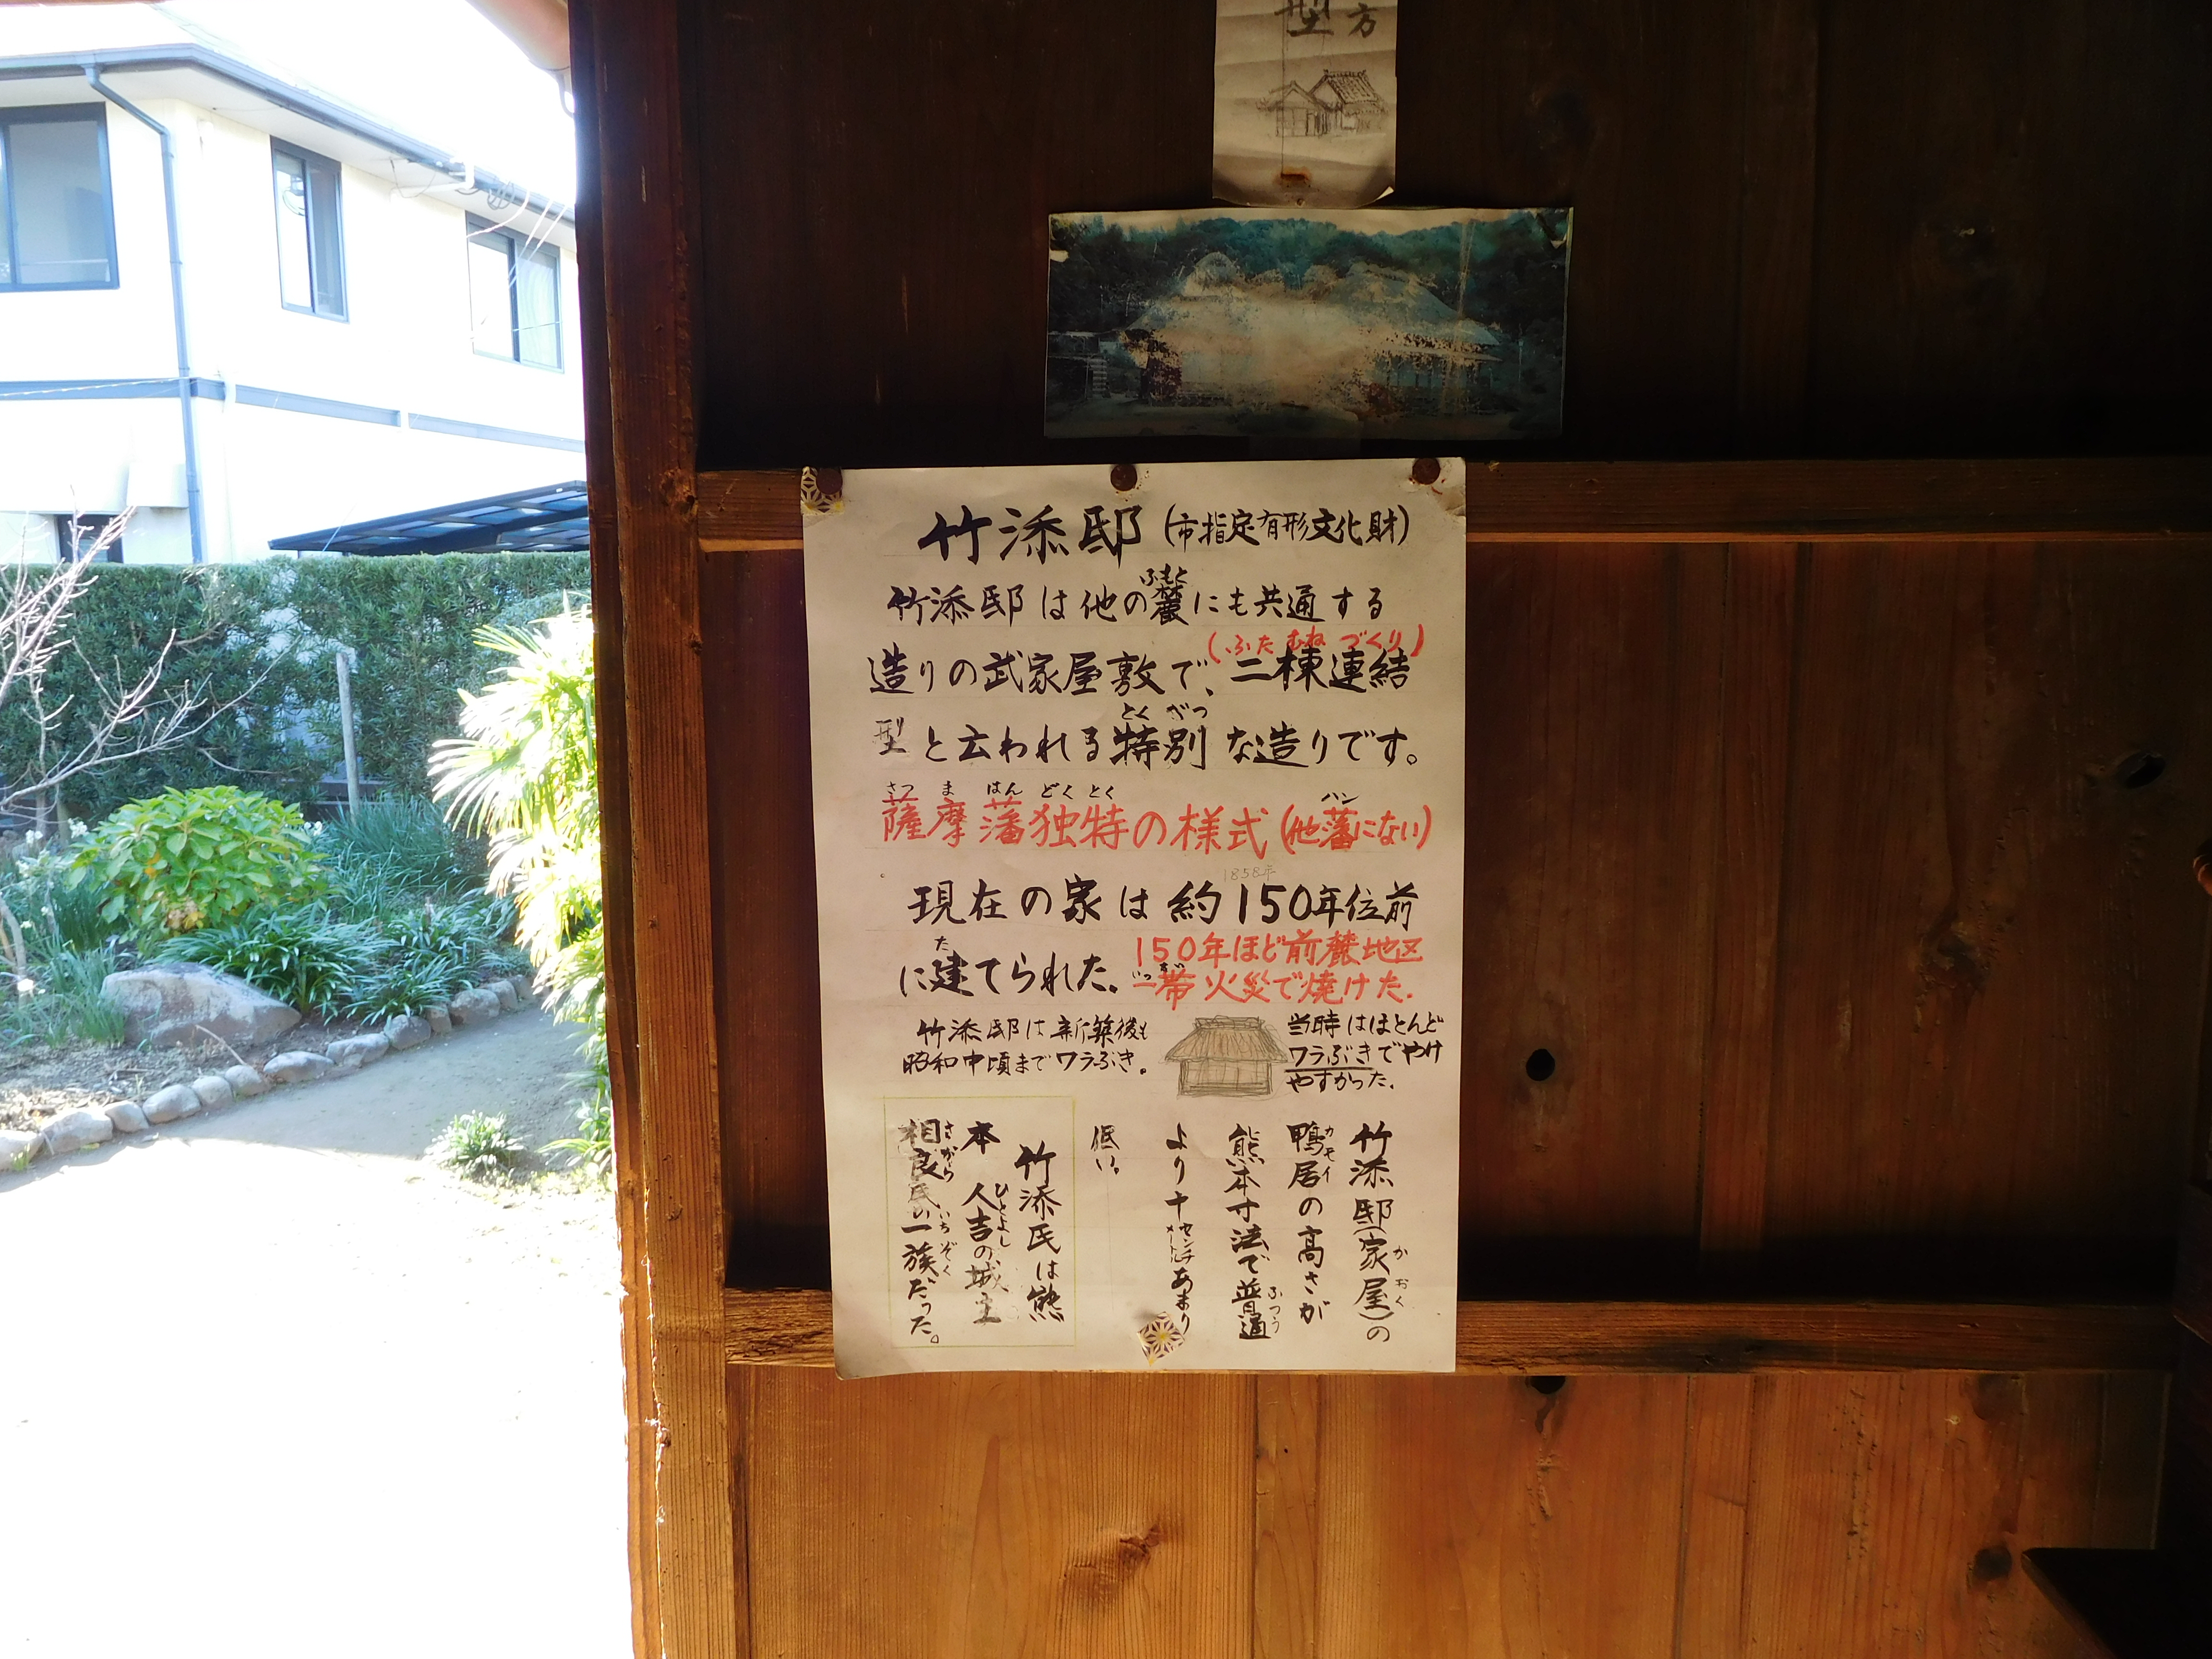 型方
竹添邸(市指定有形文化財)
ふもと
竹添邸は他の麓にも共通する
(ふたむねづくり)
造りの武家屋敷で、二棟連結
とくべつ
型と云われる特別な造りです。
さつまはんどくとく ハン
薩摩藩独特の様式(他藩にない)
1858年
現在の家は約150年位前
た
に建てられた。
150年ほど前麓地区
いったい
一帯火災で焼けた.
竹添邸は新築後も
昭和中頃までワラぶき。
当時はほとんど
ワラぶきでやけ
やすかった.
竹添邸(家屋)の
かおく
鴨居の高さが
カモイ
熊本寸法で普通
ふつう
より十センチメートルあまり
低い。
竹添氏は熊
本人吉の城主
ひとよし
相良氏の一族だった。
さがら いちぞく